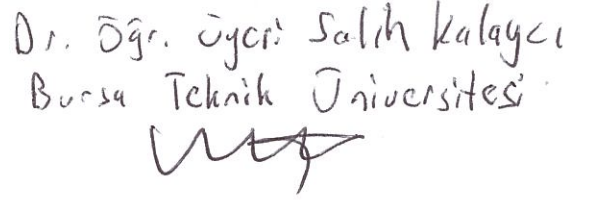 Dr. Öğr. Üyesi Salih Kalaycı
Bursa Teknik Üniversitesi